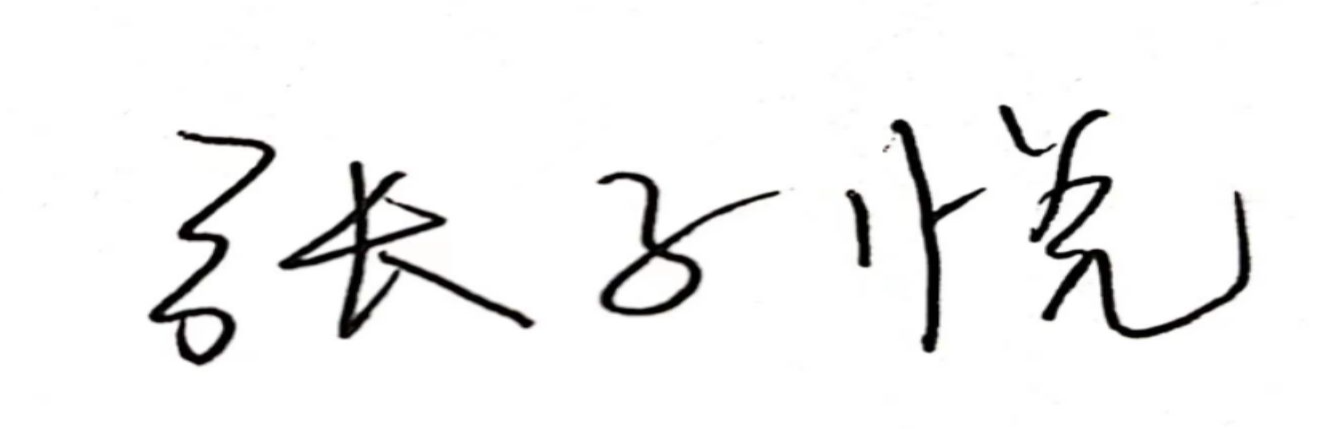 张子悦